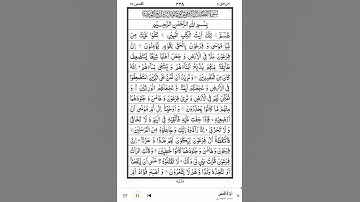 ٣٢٨
بِسْمِ اللّٰهِ الرَّحْمٰنِ الرَّحِيْمِ
طٰسٓمّٓ تِلْكَ اٰيٰتُ الْكِتٰبِ الْمُبِيْنِ نَتْلُوْا عَلَيْكَ مِنْ
نَّبَاِ مُوْسٰى وَ فِرْعَوْنَ بِالْحَقِّ لِقَوْمٍ يُّؤْمِنُوْنَ اِنَّ
فِرْعَوْنَ عَلَا فِي الْاَرْضِ وَ جَعَلَ اَهْلَهَا شِيَعًا يَّسْتَضْعِفُ
طَآئِفَةً مِّنْهُمْ يُذَبِّحُ اَبْنَآءَهُمْ وَ يَسْتَحْيٖ نِسَآءَهُمْ اِنَّهٗ
كَانَ مِنَ الْمُفْسِدِيْنَ وَ نُرِيْدُ اَنْ نَّمُنَّ عَلَى الَّذِيْنَ اسْتُضْعِفُوْا
فِي الْاَرْضِ وَ نَجْعَلَهُمْ اَئِمَّةً وَّ نَجْعَلَهُمُ الْوٰرِثِيْنَ وَ
نُمَكِّنَ لَهُمْ فِي الْاَرْضِ وَ نُرِيَ فِرْعَوْنَ وَ هَامٰنَ وَ جُنُوْدَهُمَا
مِنْهُمْ مَّا كَانُوْا يَحْذَرُوْنَ وَ اَوْحَيْنَآ اِلٰٓى اُمِّ مُوْسٰٓى اَنْ
اَرْضِعِيْهِ فَاِذَا خِفْتِ عَلَيْهِ فَاَلْقِيْهِ فِي الْيَمِّ وَ لَا تَخَافِيْ
وَ لَا تَحْزَنِيْ اِنَّا رَآدُّوْهُ اِلَيْكِ وَ جَاعِلُوْهُ مِنَ الْمُرْسَلِيْنَ
فَالْتَقَطَهٗٓ اٰلُ فِرْعَوْنَ لِيَكُوْنَ لَهُمْ عَدُوًّا وَّ حَزَنًا اِنَّ
فِرْعَوْنَ وَ هَامٰنَ وَ جُنُوْدَهُمَا كَانُوْا خٰطِـِٕيْنَ وَ قَالَتِ امْرَاَتُ
فِرْعَوْنَ قُرَّتُ عَيْنٍ لِّيْ وَ لَكَ لَا تَقْتُلُوْهُ عَسٰٓى اَنْ يَّنْفَعَنَآ
اَوْ نَتَّخِذَهٗ وَلَدًا وَّ هُمْ لَا يَشْعُرُوْنَ وَ اَصْبَحَ فُؤَادُ اُمِّ